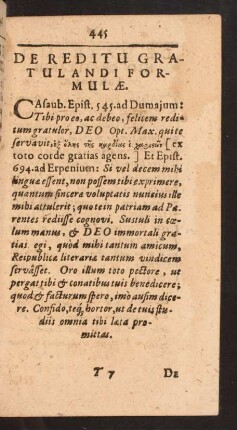 445
DE REDITU GRA-
TULANDI FOR-
MULÆ.
CAsaub. Epist. 545. ad Dumajum:
Tibi pro eo, ac debeo, felicem redi-
tum gratulor, DEO Opt. Max. qui te
servavit, ἐξ ὅλης τῆς καρδίας [ex
toto corde gratias agens.] Et Epist.
694. ad Erpenium: Si vel decem mihi
linguæ essent, non possem tibi exprimere,
quantum sincere voluptatis nuncius ille
mihi attulerit; quo te in patriam ad Pa-
rentes rediisse cognovi. Sustuli in cœ-
lum manus, & DEO immortali gra-
tias egi, quod mihi tantum amicum,
Reipublicæ literariæ tantum vindicem
servâsset. Oro illum toto pectore, ut
pergat tibi & conatibus tuis benedicere;
quod & facturum spero, imò ausim dice-
re. Confido, teq; hortor, ut de tuis stu-
diis omnia tibi læta pro-
mittas.
T 7 DE